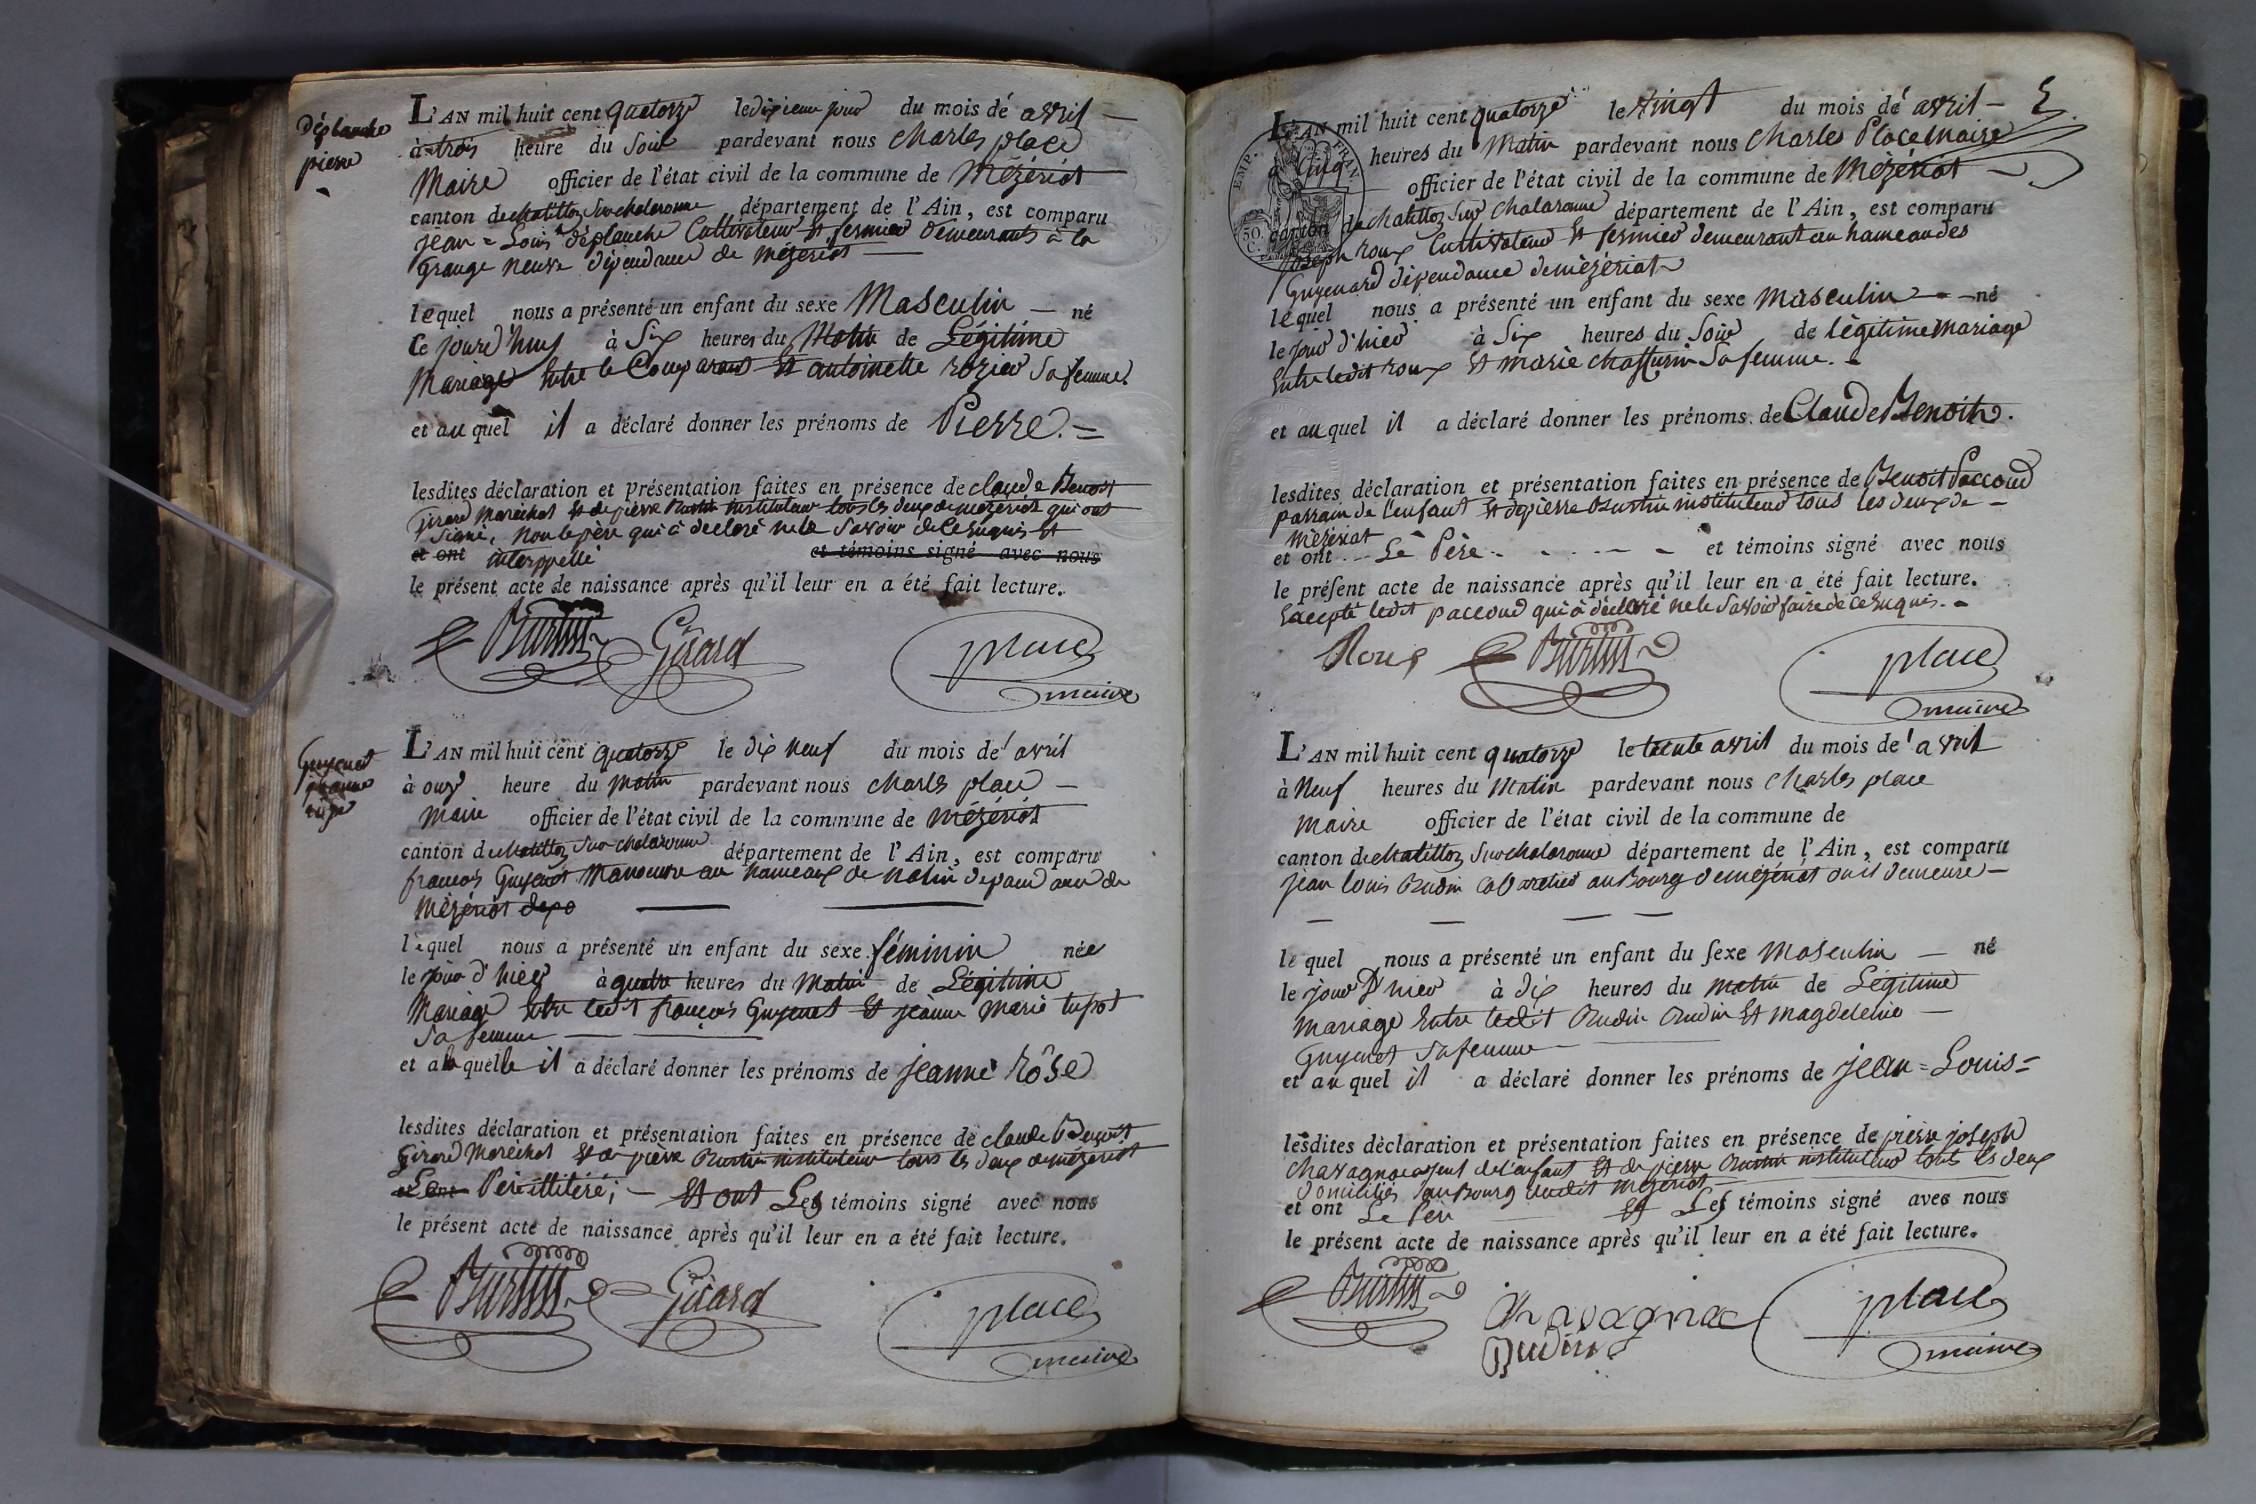 Déplanche
pierre
L'AN mil huit cent quatorze le dixieme jour du mois de avril —
à trois heure du Soir pardevant nous charles place
Maire officier de l'état civil de la commune de Mézériat
canton de chatillon Sur chalaronne département de l'Ain, est comparu
jean = Louis déplanche Cultivateur et fermier demeurants à la
Grange neuve dépendance de Mézériat —
lequel nous a présenté un enfant du sexe Masculin — né
Ce jourd'huy à Six heures du Matin de Légitime
Mariage Entre le Comparant Et antoinette rozier Sa femme.
et auquel il a déclaré donner les prénoms de Pierre. =
lesdites déclaration et présentation faites en présence de claude Benoit
Girard Maréchal Et de pierre Burtin instituteur tous les deux de mézériat qui ont
Signé, Non le père qui à declaré ne le Savoir de ce Enquis et
et ont interppellé et témoins signé avec nous
le présent acte de naissance après qu'il leur en a été fait lecture.
Burtin Girard place
maire
Guyenet
jeanne
L'AN mil huit cent quatorze le dix neuf du mois de avril
à onze heure du matin pardevant nous charles place —
Maire officier de l'état civil de la commune de Mézériat
canton de chatillon Sur chalaronne département de l'Ain, est comparu
françois Guyenet Manoeuvre au hameaux de dependance de
Mézériat depe — —
lequel nous a présenté un enfant du sexe féminin née
le jour d'hier à quatre heures du Matin de Légitime
Mariage Entre ledit françois Guyenet Et jeanne Marie tupot
Sa femme —
et a la quelle il a déclaré donner les prénoms de jeanne rôse
lesdites déclaration et présentation faites en présence de claude Benoit
Girard Maréchal Et de pierre Burtin instituteur tous les deux de mézériat
et ont Père illitéré; — Et ont Les témoins signé avec nous
le présent acte de naissance après qu'il leur en a été fait lecture.
Burtin Girard place
maire
L'AN mil huit cent quatorze le vingt du mois de avril —
à Cinq heures du Matin pardevant nous Charles Place Maire
officier de l'état civil de la commune de Mézériat —
canton de chatillon Sur Chalaronne département de l'Ain, est comparu
Joseph roux Cultivateur Et fermier demeurant au hameau des
Guyenard dépendance de mézériat
EMP. FRAN.
50.
C.
lequel nous a présenté un enfant du sexe Masculin — né
le jour d'hier à Six heures du Soir de légitime Mariage
Entre ledit roux Et marie Sa femme. —
et auquel il a déclaré donner les prénoms de Claude Benoit.
lesdites déclaration et présentation faites en présence de Benoit Paccoud
parrain de l'enfant Et de pierre Burtin instituteur tous les deux de —
Mézériat
et ont Le Père — et témoins signé avec nous
le présent acte de naissance après qu'il leur en a été fait lecture.
Excepté ledit paccoud qui à déclaré ne le Savoir faire de ce Enquis. —
Roux Burtin place
maire
L'AN mil huit cent quatorze le trente avril du mois de avril
à Neuf heures du Matin pardevant nous Charles place
Maire officier de l'état civil de la commune de
canton de chatillon Sur chalaronne département de l'Ain, est comparu
jean louis Budin Cabaretier au Bourg de mézériat ou il demeure —
— — — —
lequel nous a présenté un enfant du sexe Masculin — né
le jour D'hier à dix heures du matin de Légitime
Mariage Entre ledit Budin Et Magdeleine —
Guyenet Sa femme —
et auquel il a déclaré donner les prénoms de jean = Louis =
lesdites déclaration et présentation faites en présence de pierre joseph
Chavagnac de l'enfant Et de pierre Burtin instituteur tous les deux
Domiciliés au Bourg dudit mézériat —
et ont Le Père — Et Les témoins signé avec nous
le présent acte de naissance après qu'il leur en a été fait lecture.
Burtin Chavagnac place
Budin maire